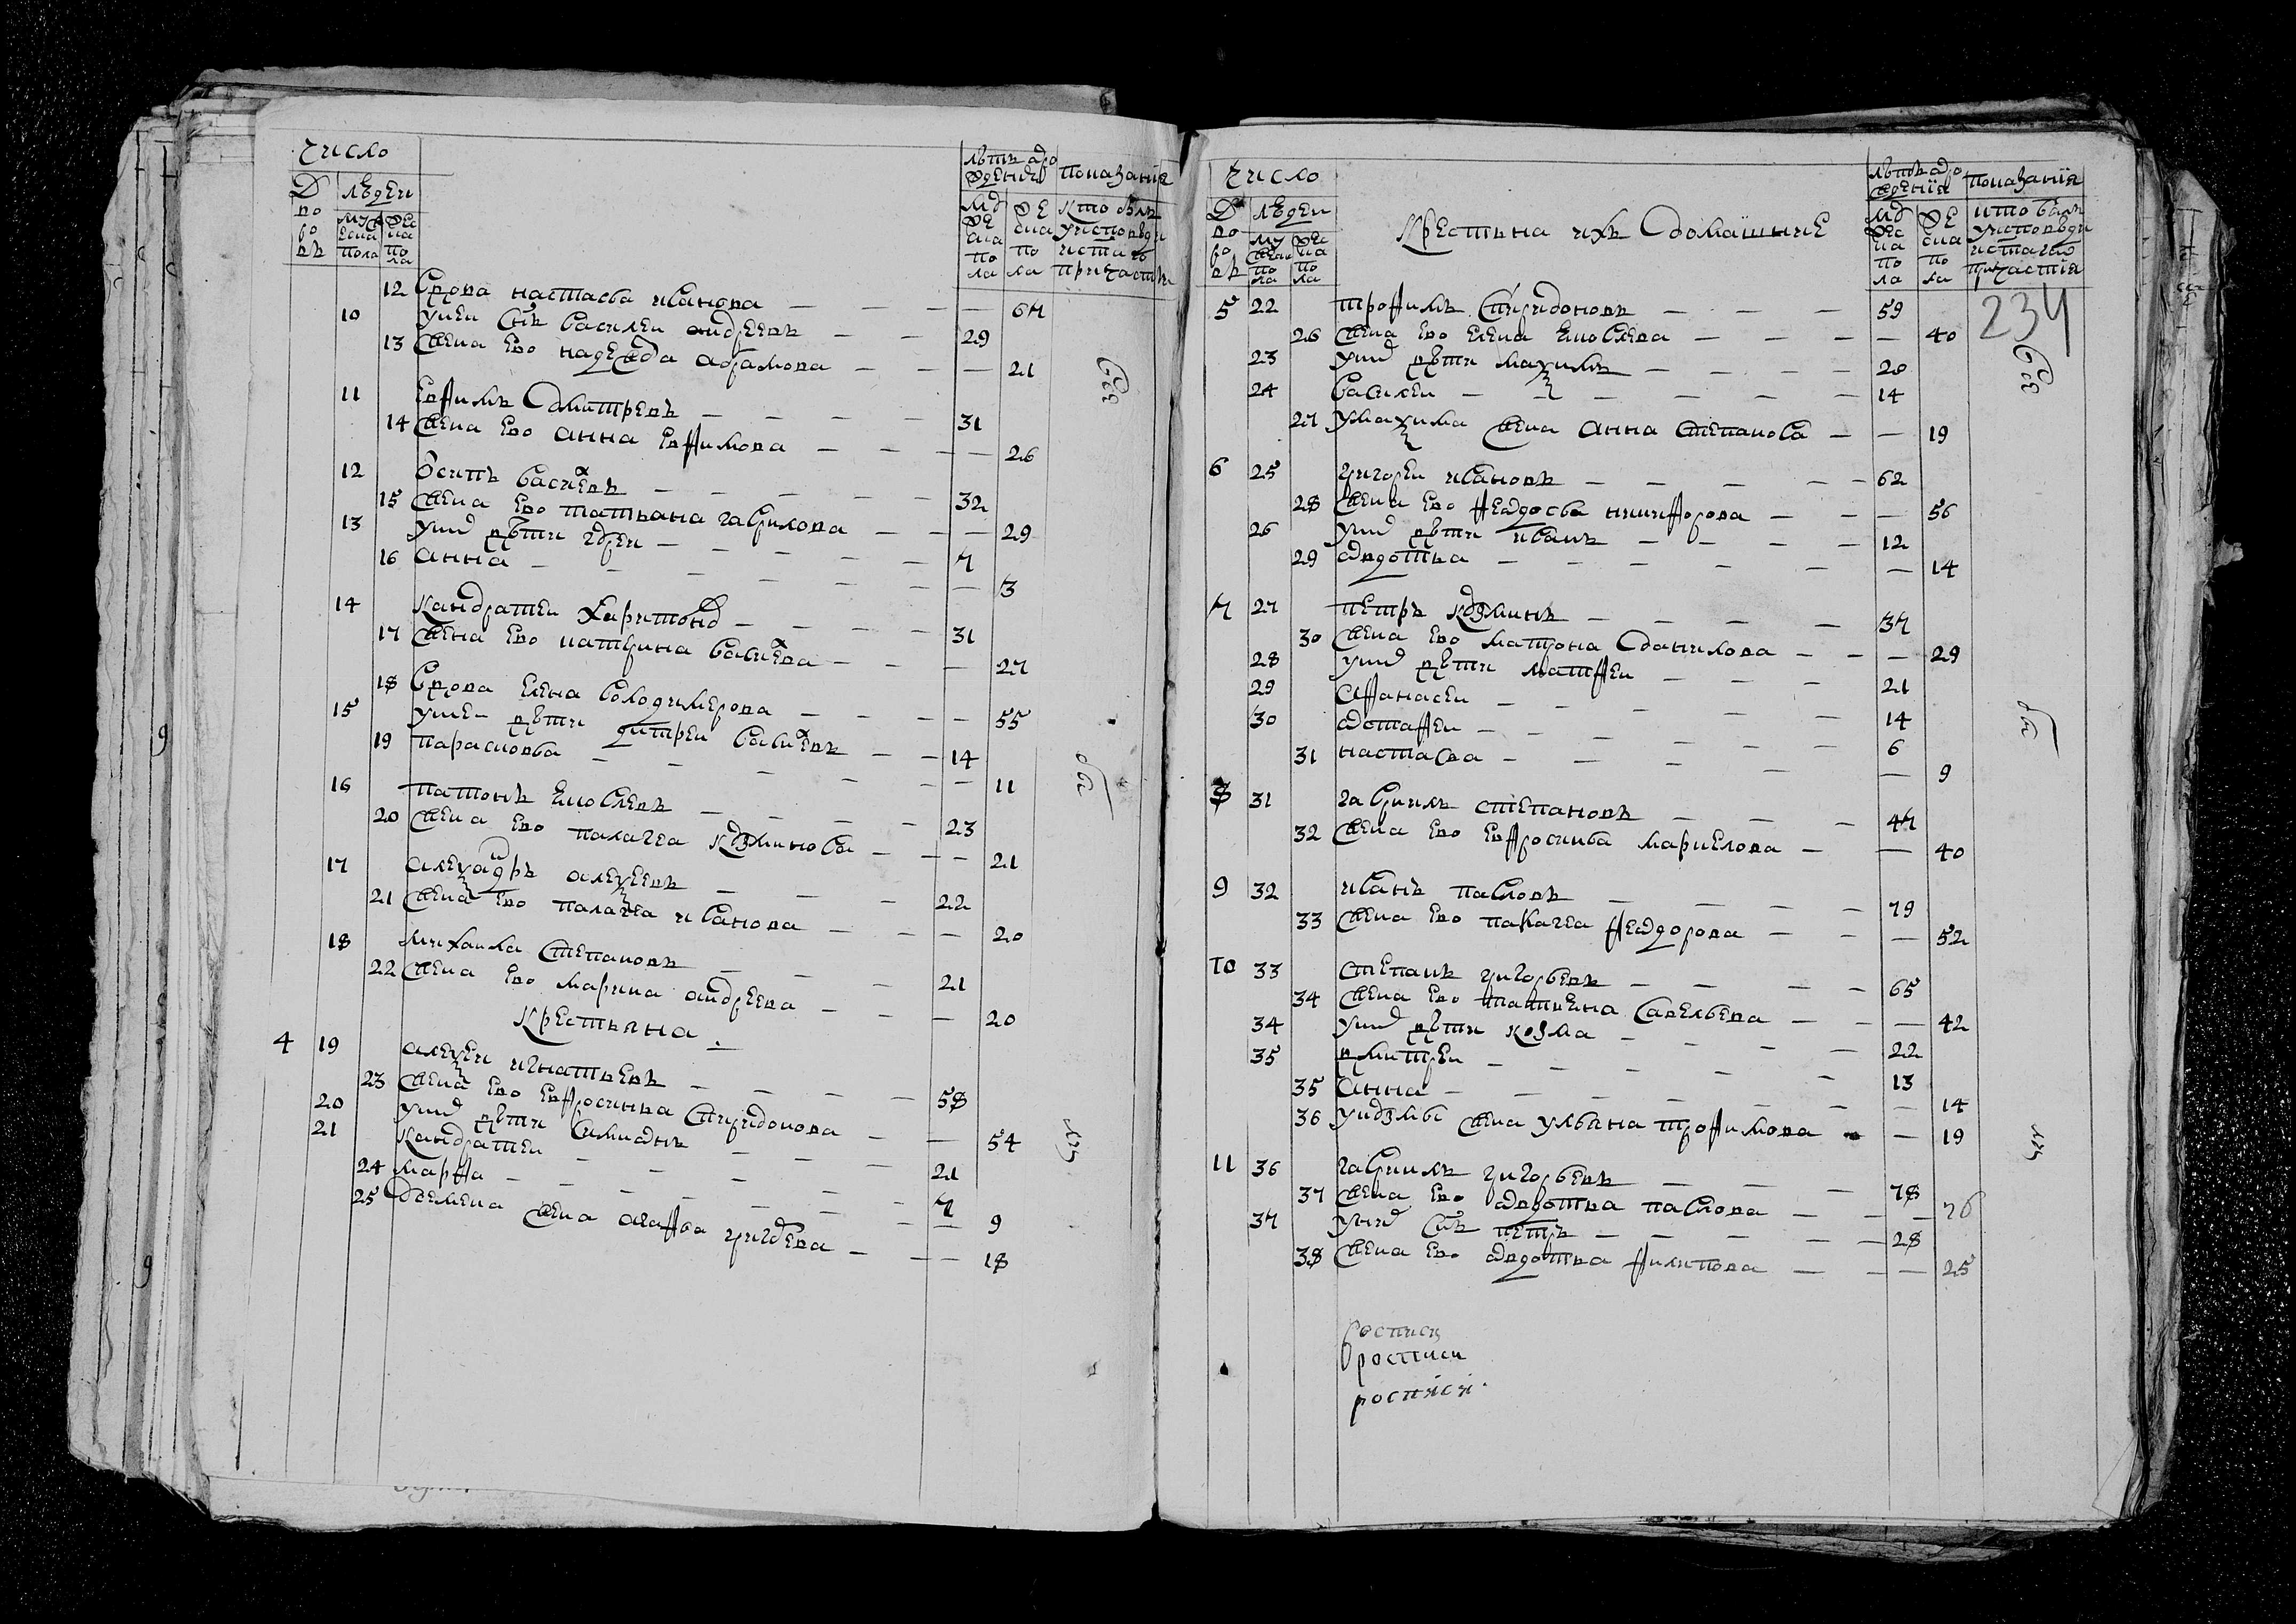 число
лѣтъ ѿро
жденїѧ
показанїѧ
дво
ро
въ
людеи
муж
еска
пола
жес
ка
по
ла
му
жес
ка
по
ла
же
ска
по
ла
кто былъ
у исповѣди
и стаго
причастиѧ
12 вдова настасья иванова — — — 67
10 у неи снъ василеи андреевъ — — 29
13 жена ево надежда абрамова — — — 21
11 ефимъ дмитревъ — — — — 31
14 жена ево анна ефимова — — — — 26
12 осипъ василевъ — — — — — 32
15 жена ево татьяна гаврилова — — — 29
13 у нихъ дѣти — — — — 7
16 анна — — — — — — 3
14 кандратеи харитоновъ — — — — 31
17 жена ево катерина василева — — — 27
18 вдова елена володимерова — — — — 55
15 у неи дѣти дмитреи василевъ — — 14
19 парасковья — — — — — — 11
16 патонъ яковлевъ — — — — 23
20 жена ево палагея кузминова — — — 21
17 алеѯандръ алеѯеевъ — — — 22
21 жена ево палагея иванова — — — 20
18 михаила степановъ — — — 21
22 жена ево марина андреева — — — 20
крестьяна
4 19 алеѯеи игнатьевъ — — — — 58
23 жена ево ефросинья спиридонова — — 54
20 у нихъ дѣти симионъ — — 21
21 кандратеи — — — — 7
24 марфа — — — — — 9
25 жена агафья григорева — — — 18
число
лѣтъ ѿро
жденїѧ
показанїѧ
дво
ро
въ
людеи
му
жеска
по
ла
жес
ка
по
ла
крестьяна ихъ домашние
му
жес
ка
по
ла
же
ска
по
ла
кто былъ
у исповѣди
и стаго
причастїѧ
234
5 22 трофимъ спиридоновъ — — — 59
26 жена ево елена яковлева — — — — 40
23 у нихъ дѣти маѯимъ — — — — 20
24 василеи — — — — — — 14
27 у маѯима жена анна степанова — — 19
6 25 григореи ивановъ — — — — — 62
28 жена ево федосья никифорова — — — 56
26 у нихъ дѣти иванъ — — — — 12
29 авдотья — — — — — — 14
7 27 петръ кузминъ — — — — 37
30 жена ево матрона данилова — — — 29
28 у нихъ дѣти матфеи — — — 21
29 афанасеи — — — — — 14
30 астафеи — — — — — 6
31 настасья — — — — — 9
8 31 гаврилъ степановъ — — — 47
32 жена ево ефросинья — — 40
9 32 иванъ павловъ — — — — 79
33 жена ево палагея федорова — — — 52
10 33 степанъ григорьевъ — — — — 65
34 жена ево татьяна савельева — — — 42
34 у нихъ дѣти козма — — — — 22
35 дмитреи — — — — — 13
35 анна — — — — — — 14
36 у кузмы жена ульяна трофимова — — 19
11 36 гаврилъ григорьевъ — — — 78
37 жена ево авдотья павлова — — — 76
37 у нихъ снъ петръ — — — — — 28
38 жена ево авдотья филипова — — — 25
роспись
росписи
росписи